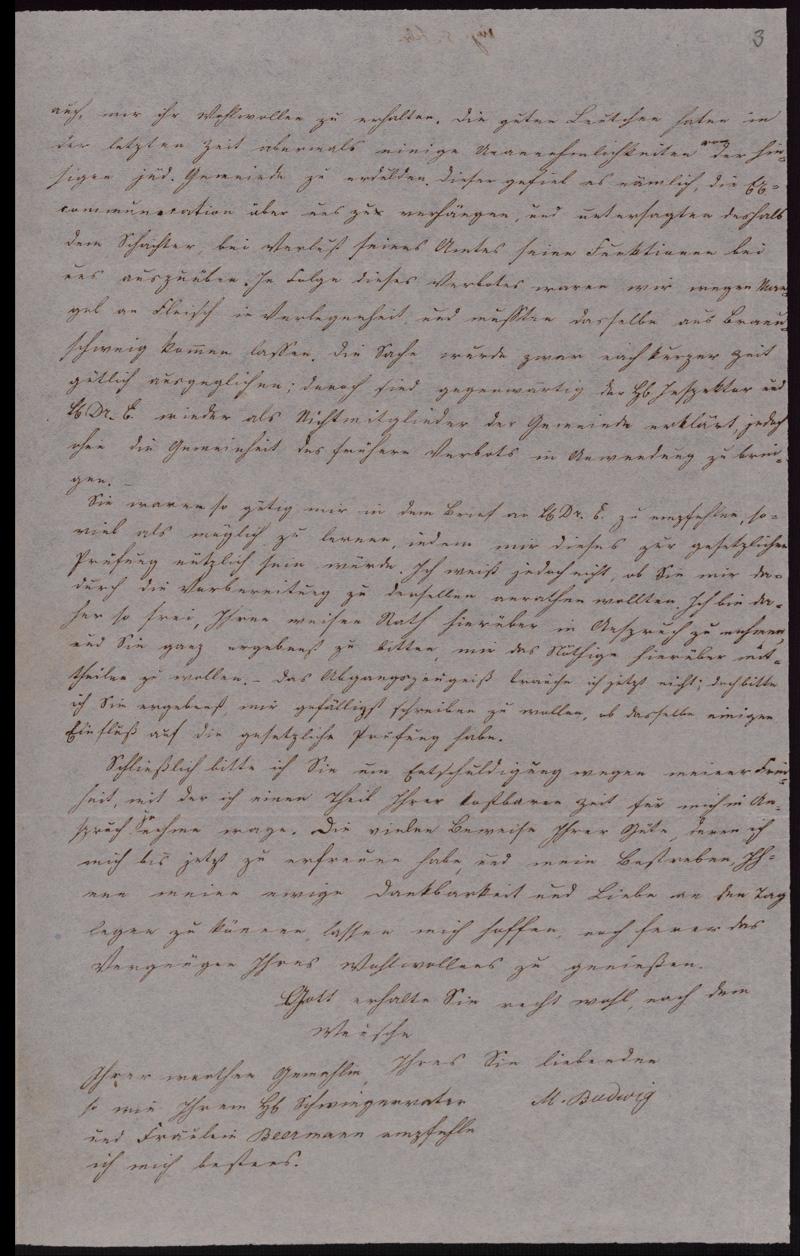 3
auch, mir ihr Wohlwollen zu erhalten. Die guten Leutchen haben in
der letzten Zeit abermals einige Unannehmlichkeiten von der hie-
sigen jüd. Gemeinde zu erdulden. Dieser gefiel es nämlich, die Ex-
communication über uns zu verhängen, und untersagten deshalb
dem Schächter, bei Verlust seines Amtes seine Funktionen bei
uns auszuüben. In Folge dieses Verbotes waren wir wegen Man-
gel an Fleisch in Verlegenheit und mussten dasselbe aus Braun-
schweig kommen lassen. Die Sache wurde zwar nach kurzer Zeit
gütlich ausgeglichen; dennoch sind gegenwärtig der H Inspektor und
H Dr. E. wieder als Nichtmitglieder der Gemeinde erklärt, jedoch
ohne die Gemeinheit des frühern Verbots in Anwendung zu brin-
gen. –
Sie waren so gütig mir in dem Brief an H Dr. E. zu empfehlen, so-
viel als möglich zu lernen, indem mir dieses zur gesetzlichen
Prüfung nützlich sein würde. Ich weiß jedoch nicht, ob Sie mir da-
durch die Vorbereitung zu derselben anrathen wollten. Ich bin da-
her so frei, Ihren weisen Rath hierüber in Anspruch zu nehmen,
und Sie ganz ergebenst zu bitten, mir das Nöthige hierüber mit-
theilen zu wollen. – Das Abgangszeugniß brauche ich jetzt nicht; doch bitte
ich Sie ergebenst mir gefälligst schreiben zu wollen, ob dasselbe einigen
Einfluß auf die gesetzliche Prüfung habe.
Schließlich bitte ich Sie um Entschuldigung wegen meiner Frei-
heit, mit der ich einen Theil Ihrer kostbaren Zeit für mich in An-
spruch zu nehmen wage. Die vielen Beweise Ihrer Güte, deren ich
mich bis jetzt zu erfreuen habe, und mein Bestreben, Ih-
nen meine ewige Dankbarkeit und Liebe an den Tag
legen zu können, lassen mich hoffen, noch ferner das
Vergnügen Ihres Wohlwollens zu genießen.
Gott erhalte Sie recht wohl, nach dem
Wunsche
Ihres Sie liebenden
M. Budwig
Ihrer werthen Gemahlin,
so wie Ihrem H Schwiegervater
und Fräulein Beermann empfehle
ich mich bestens.